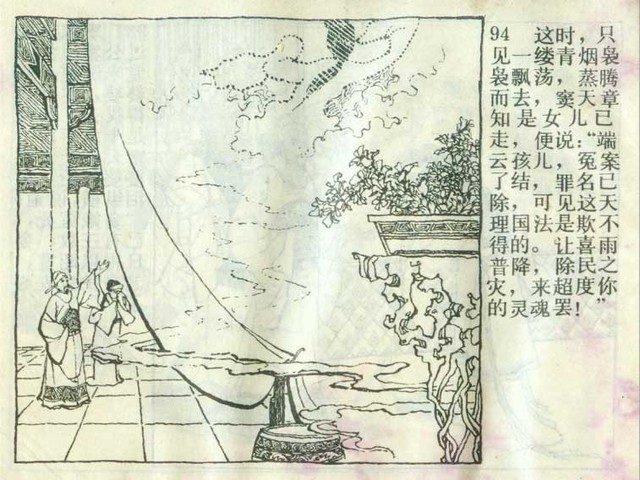 94 这时，只
见一缕青烟袅
袅飘荡，蒸腾
而去，窦天章
知是女儿已
走，便说：“端
云孩儿，冤案
了结，罪名已
除，可见这天
理国法是欺不
得的。让喜雨
普降，除民之
灾，来超度你
的灵魂罢！”